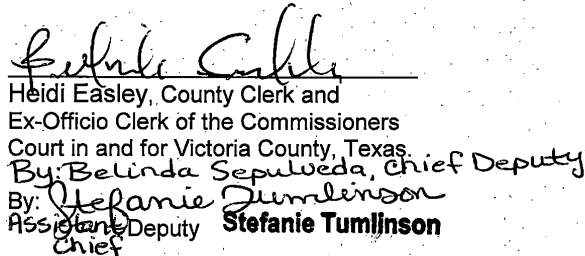 Heidi Easley, County Clerk and
Ex-Officio Clerk of the Commissioners
Court in and for Victoria County, Texas.
By: Belinda Sepulveda, Chief Deputy
By: Stefanie Tumlinson
Assistant Deputy Stefanie Tumlinson
Chief